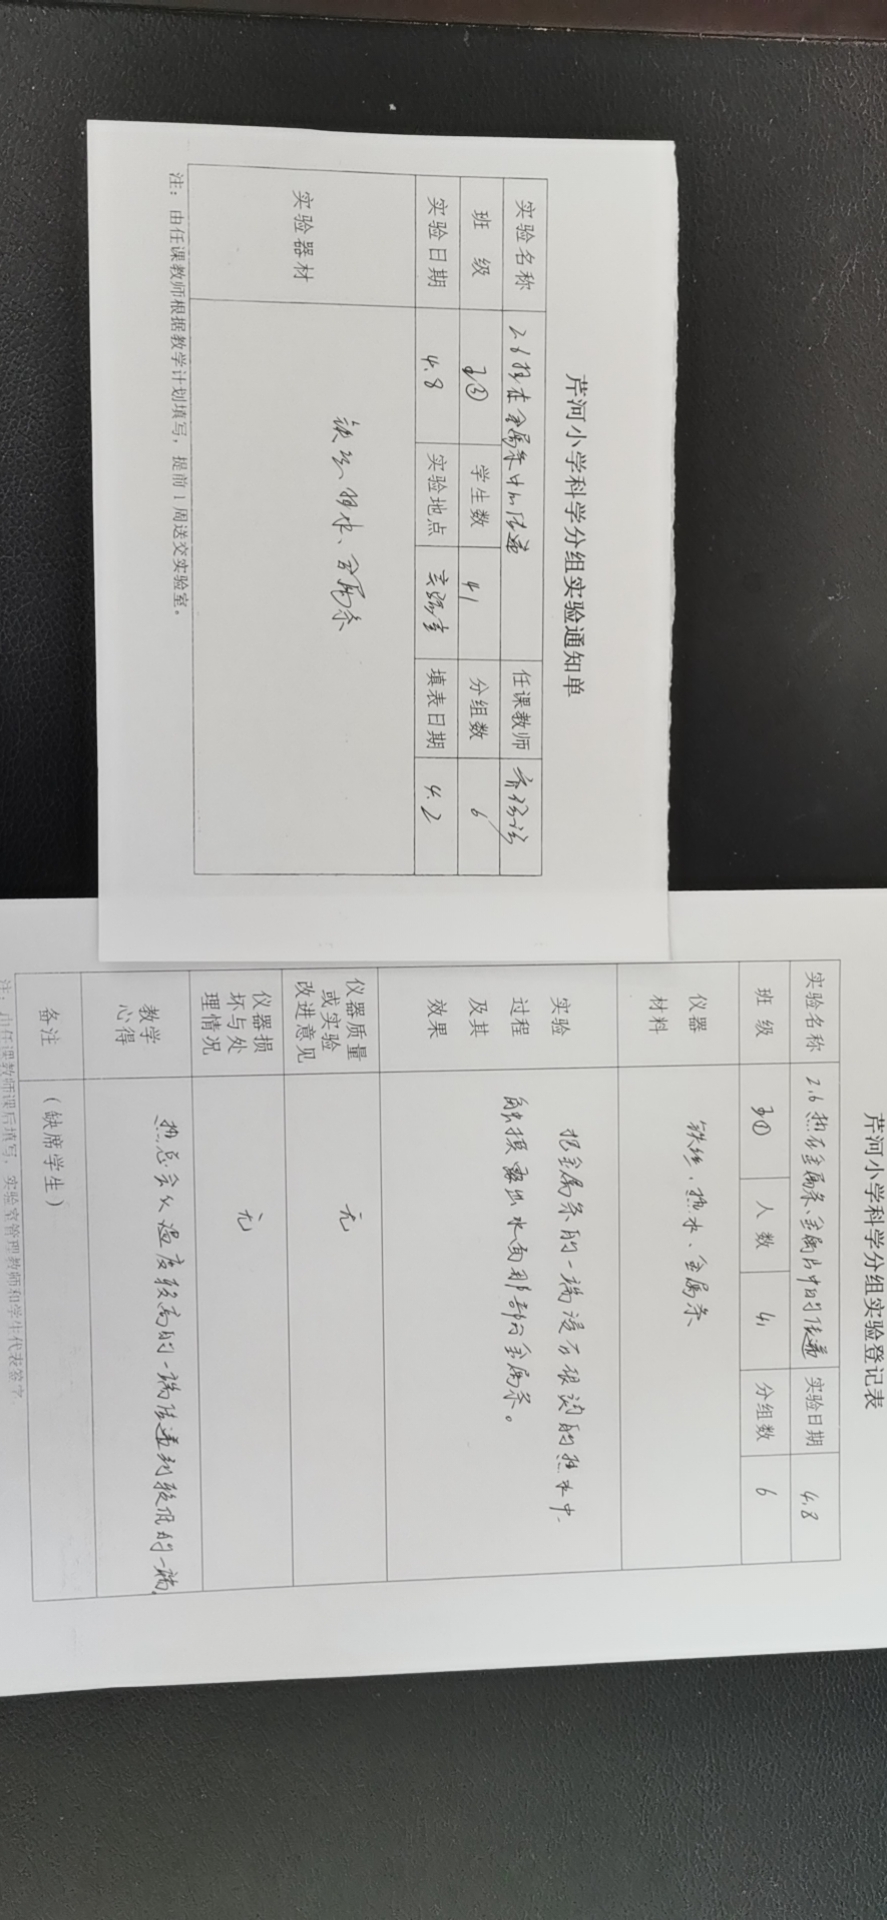 芹河小学科学分组实验通知单
实验名称 2.6热在金属条中的传递 任课教师
班 级 3③ 学生数 41 分组数 6
实验日期 4.8 实验地点 实验室 填表日期 4.2
实验器材 铁丝、热水、金属条
注：由任课教师根据教学计划填写，提前1周送交实验室。
芹河小学科学分组实验登记表
实验名称 2.6热在金属条、金属片中的传递 实验日期 4.8
班 级 3① 人 数 41 分组数 6
仪器
材料
铁丝、热水、金属条
实验
过程
及其
效果
把金属条的一端浸在很烫的热水中，
触摸露出水面那部分金属条。
仪器质量
或实验
改进意见
无
仪器损
坏与处
理情况
无
教学
心得
热总会从温度较高的一端传递到较低的一端，
备注 （缺席学生）
注：由任课教师课后填写，实验室管理教师和学生代表签字